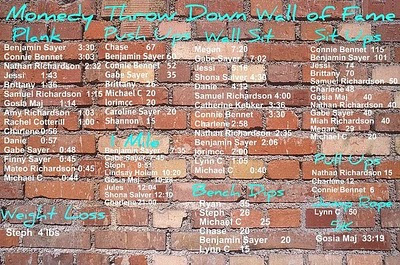 Momedy Throw Down Wall of Fame
Plank
Benjamin Sayer 3:30
Connie Bennet 3:03
Nathan Richardson 2:32
Jessi 1:43
Brittany 1:36
Samuel Richardson 1:15
Gosia Maj 1:14
Amy Richardson 1:03
Rachel Cotterill 1:00
Charlene 0:56
Danie 0:57
Gabe Sayer 0:48
Finny Sayer 0:45
Mateo Richardson 0:45
Michael C 0:44
Weight Loss
Steph 4 lbs
Push Ups
Chase 67
Benjamin Sayer 60
Connie Bennet 52
Gabe Sayer 35
Brittany 26
Michael 10
Caroline Sayer 20
Shannon 15
1 Mile
Benjamin Sayer
Gabe Sayer
Steph 9:51
Lindsay Holom 10:20
Gosia Maj
Jules 12:04
Shona Salver 12:10
Charlene
Wall Sit
Megan 7:20
Gabe Sayer 7:02
Jessi 5:16
Shona Salver 4:30
Danie 4:15
Samuel Richardson 4:00
Catherine Kebker 3:36
Connie Bennet 3:30
Charlene 2:58
Nathan Richardson 2:35
Benjamin Sayer 2:06
Lynn C 1:05
Michael C 0:40
Bench Dips
Ryan 35
Steph 26
Michael C 25
Chase 20
Benjamin Sayer 20
Lynn C 15
Sit Ups
Connie Bennet 115
Benjamin Sayer 101
Jessi 74
Brittany 70
Samuel Richardson 50
Charlene 48
Gosia Maj 40
Nathan Richardson 40
Miah Richardson 40
Megan 29
Michael C 20
Pull Ups
Nathan Richardson 15
Charlene 12
Connie Bennet 6
Jump Rope
Lynn C 50
5K
Gosia Maj 33:19